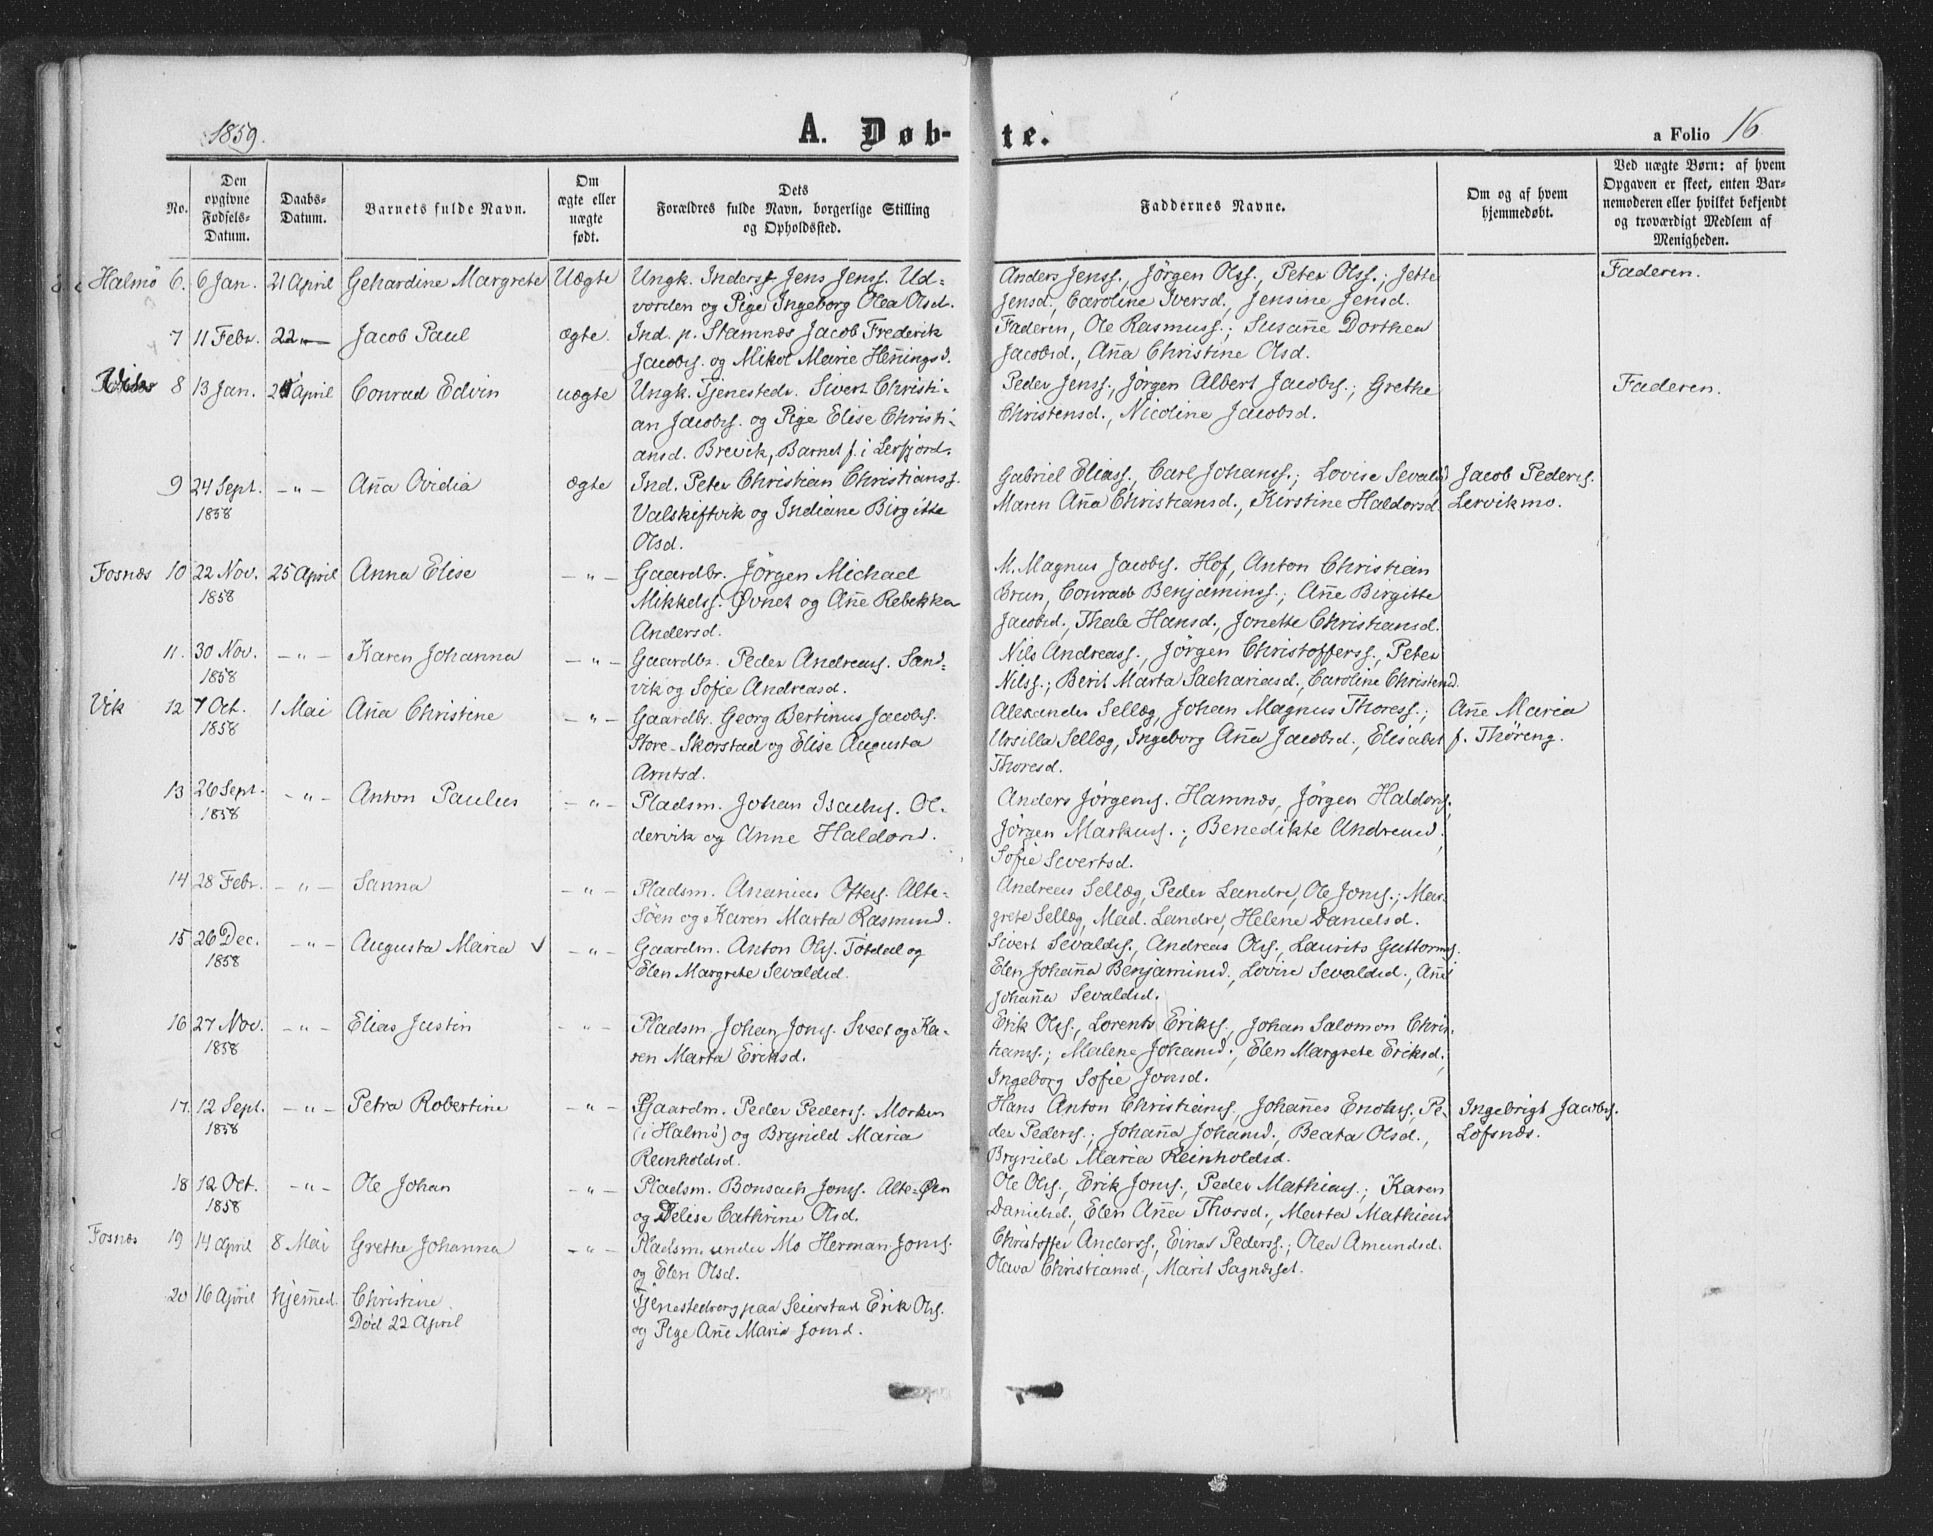 1859.
A. Døb-
te.
a Folio 16
No.
Den opgivne Fødsels-Datum.
Daabs-Datum.
Barnets fulde Navn.
Om ægte eller uægte født.
Dets Forældres fulde Navn, borgerlige Stilling og Opholdssted.
Faddernes Navne.
Om og af hvem hjemmedøbt.
Ved uægte Børn: af hvem Opgaven er skeet, enten Barnemoderen eller hvilket bekjendt og troværdigt Medlem af Menigheden.
Halmø 6. 6 Jan. 21 April Gehardine Margrete Uægte Ungk. Inderst Jens Jenss. Ud-
vorden og Pige Ingeborg Olea Olsd.
Anders Jenss., Jörgen Olss., Peter Olss.; Jette
Jensd., Caroline Iversd., Jensine Jensd.
Faderen.
7 11 Febr. 22 -„- Jacob Paul ægte. Ind. p. Stamnæs Jacob Frederik
Jacobs. og Mikol Marie Heñingsd.
Faderen, Ole Rasmuss.; Susañe Dorthea
Jacobsd., Aña Christine Olsd.
Vik 8 13 Jan. 24 April Conrad Edvin uægte Ungk. Tjenestedr. Sivert Christi-
an Jacobs. og Pige Elise Christi-
ansd. Brevik, Barnet f. i Lerfjord.
Peder Jenss., Jörgen Albert Jacobs.; Grethe
Christensd., Nicoline Jacobsd.
Faderen.
9 24 Sept. 1858 -„- Aña Ovidia ægte Ind. Peter Christian Christianss.
Valskeftvik og Indiane Birgitte
Olsd.
Gabriel Eliass., Carl Johanss.; Lovise Sevald
Maren Aña Christiansd., Kirstine Haldorsd
Jacob Peders.
Lervikmo.
Fosnæs 10 22 Nov. 1858 25 April Anna Elise -„- Gaardbr. Jörgen Michael
Mikkelss. Øvnet og Añe Rebekka
Andersd.
M. Magnus Jacobs. Hof, Anton Christian
Brun, Conrad Benjamins.; Añe Birgitte
Jacobsd., Thale Hansd., Jonette Christiansd.
11. 30 Nov. 1858 -„- Karen Johanna -„- Gaardbr. Peder Andreas. Sand-
vik og Sofie Andreasd.
Nils Andreass., Jörgen Christofferss., Peter
Nilss.; Berit Marta Sachariasd., Caroline Christensd.
Vik 12 7 Oct. 1858 1 Mai Aña Christine -„- Gaardbr. Georg Bertinus Jacobs.
Store-Skorstad og Elise Augusta
Arntsd.
Alexander Sellæg, Johan Magnus Thoress.;
Ursilla Sellæg, Ingeborg Aña Jacobsd., Elisabet
Thoresd.
Añe Maria
f. Thöreng.
13 26 Sept. 1858 -„- Anton Paulus -„- Pladsm. Johan Isachs. Ol-
dervik og Anne Haldorsd.
Anders Jörgens. Hamnæs, Jörgen Haldors,
Jörgen Markuss.; Benedikte Andreasd.,
Sofie Sivertsd.
14 28 Febr. -„- Sanna -„- Pladsm. Ananias Otters. Alte-
Söen og Karen Marta Rasmusd.
Andreas Sellæg, Peder Landre, Ole Jons.; Mar-
grete Sellæg, Mad. Landre, Helene Danielsd.
15 26 Dec. 1858 -„- Augusta Maria v -„- Gaardm. Anton Ols. Totdal og
Elen Margrete Sevaldsd.
Sivert Sevalds., Andreas Ols., Laurits Guttorms.
Elen Johaña Benjaminsd., Lovise Sevaldsd., Añe
Johaña Sevaldsd.
16 27 Nov. 1858 -„- Elias Justin -„- Pladsm. Johan Jons. Sveet og Ka-
ren Marta Eriksd.
Erik Ols., Lorents Eriks., Johan Salomon Chris-
tians.; Malene Johansd., Elen Margrete Eriksd.,
Ingeborg Sofie Jonsd.
17. 12 Sept. 1858 -„- Petra Robertine -„- Gaardm. Peder Pederss. Morken
(i Halmø) og Brynild Maria
Reinholdsd.
Hans Anton Christians., Johañes Enoks., Pe-
der Pederss.; Johaña Johansd., Beata Olsd.,
Brynild Maria Reinholdsd.
Ingebrigt Jacobs.
Lofsnæs.
18 12 Oct. 1858 -„- Ole Johan -„- Pladsm. Bonsach Jons. Alte-Øen
og Delise Cathrine Olsd.
Ole Ols., Erik Jons., Peder Mathias.; Karen
Danielsd., Elen Aña Thorsd., Marta Mathiasd
Fosnæs 19 14 April 8 Mai Grethe Johanna -„- Pladsm. under Mo Herman Jons.
og Elen Olsd.
Christoffer Anderss., Einar Pederss.; Olea Amundsd.
Olava Christiansd., Marit Sagnæsset.
20 16 April hjemed. Christine
Död 22 April
Tjenestedreng paa Seierstad Erik Ols.
og Pige Añe Maria Jonsd.